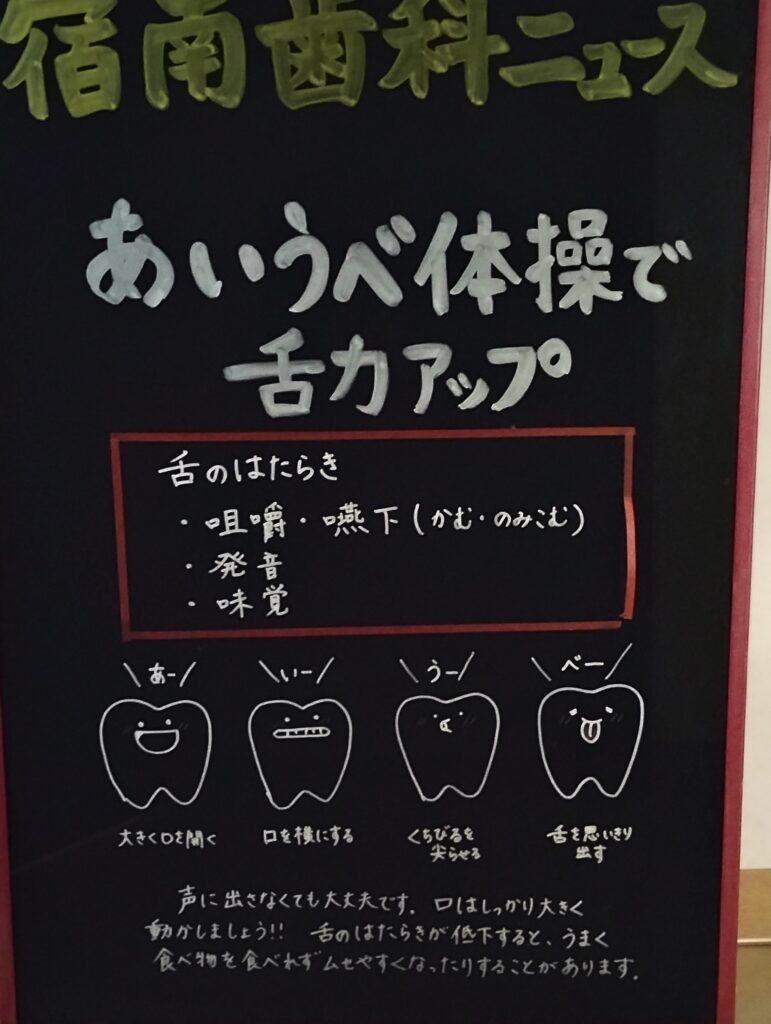 宿南歯科ニュース
あいうべ体操で
舌力アップ
舌のはたらき
・咀嚼・嚥下(かむ・のみこむ)
・発音
・味覚
あー
いー
うー
べー
大きく口を開く
口を横にする
くちびるを
尖らせる
舌を思いきり
出す
声に出さなくても大丈夫です。口はしっかり大きく
動かしましょう!! 舌のはたらきが低下すると、うまく
食べ物を食べれずムせやすくなったりすることがあります。